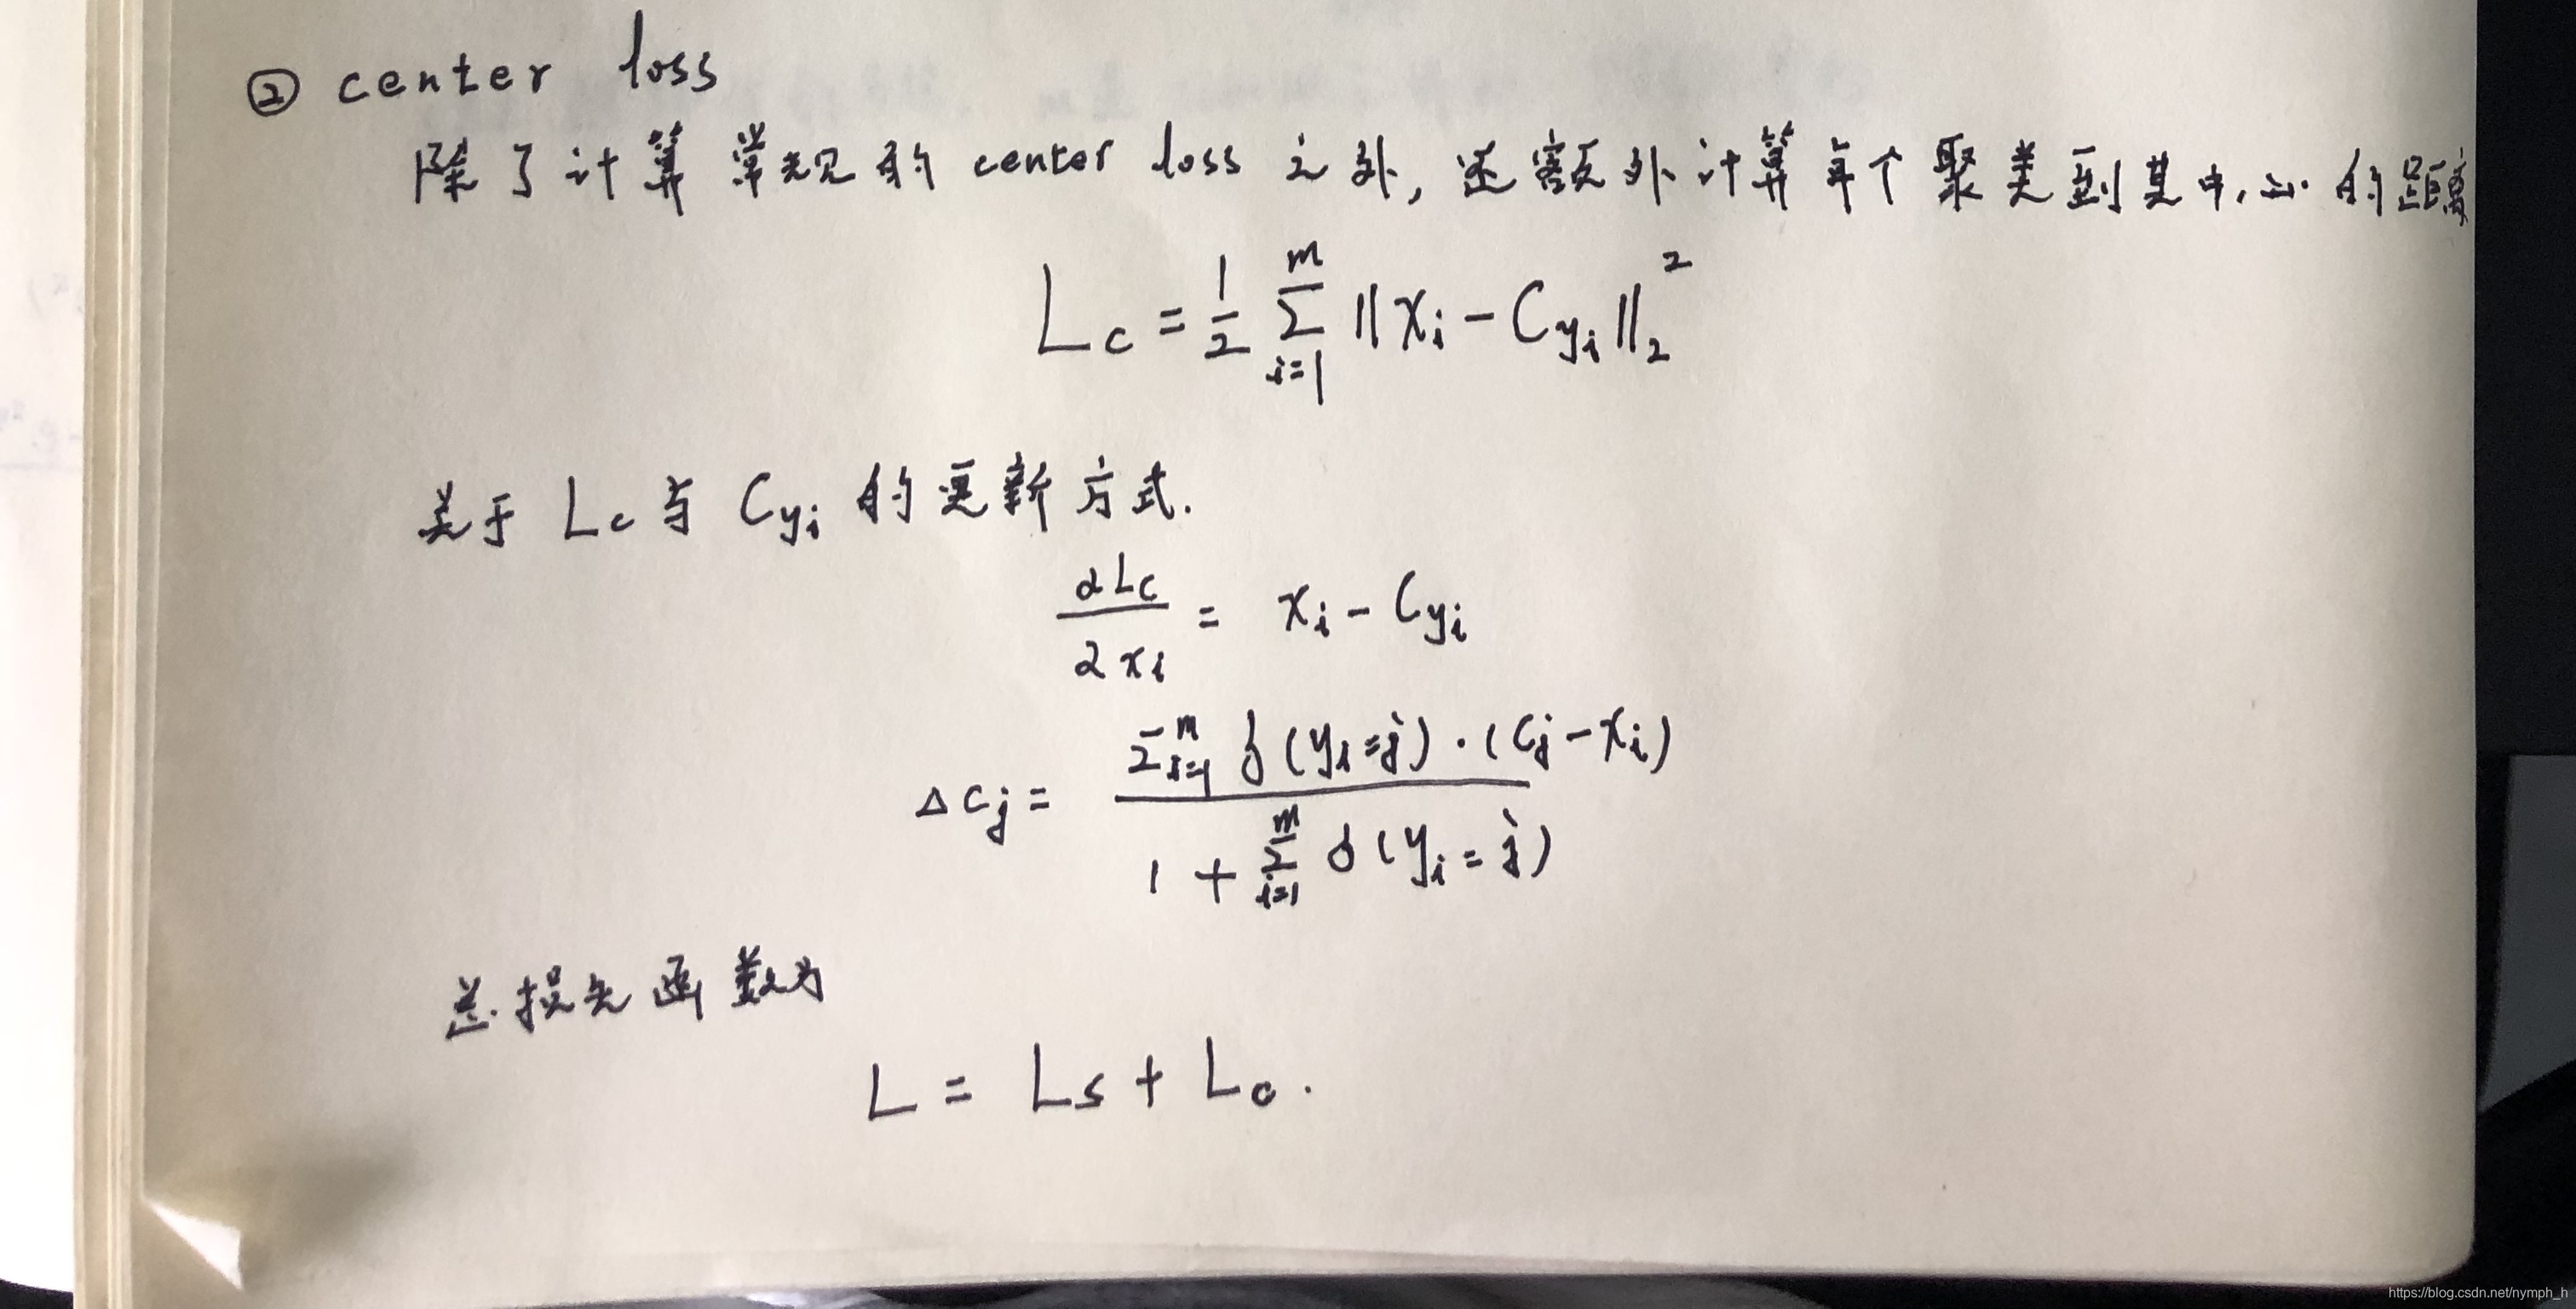 ② center loss
除了计算常规的 center loss 之外,还额外计算每个聚类到其中心的距离
Lc = 1/2 Σ_{i=1}^{m} ||x_i - C_{y_i}||_2^2
关于 Lc 与 C_{y_i} 的更新方式.
∂Lc/∂x_i = x_i - C_{y_i}
Δc_j = Σ_{i=1}^{m} δ(y_i=j)·(C_j-x_i) / 1 + Σ_{i=1}^{m} δ(y_i=j)
总损失函数为
L = Ls + Lc.
https://blog.csdn.net/nymph_h